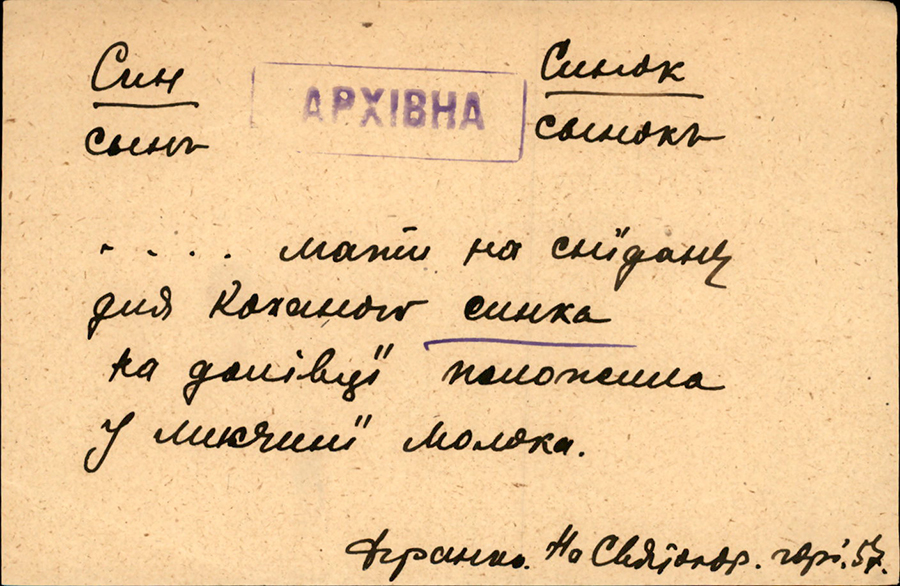 Син
АРХІВНА
Синок
сынъ
сынокъ
. . . . мати на снїданє
для коханого синка
на долівцї положила
У микчинї молока.
Франко. На Святоюр. горі. 57.